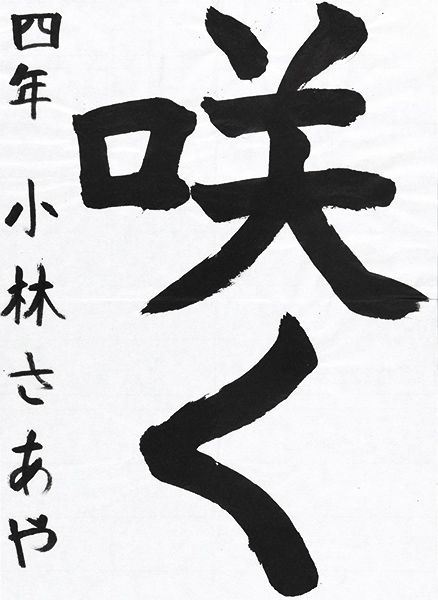 咲く
四年 小林さあや